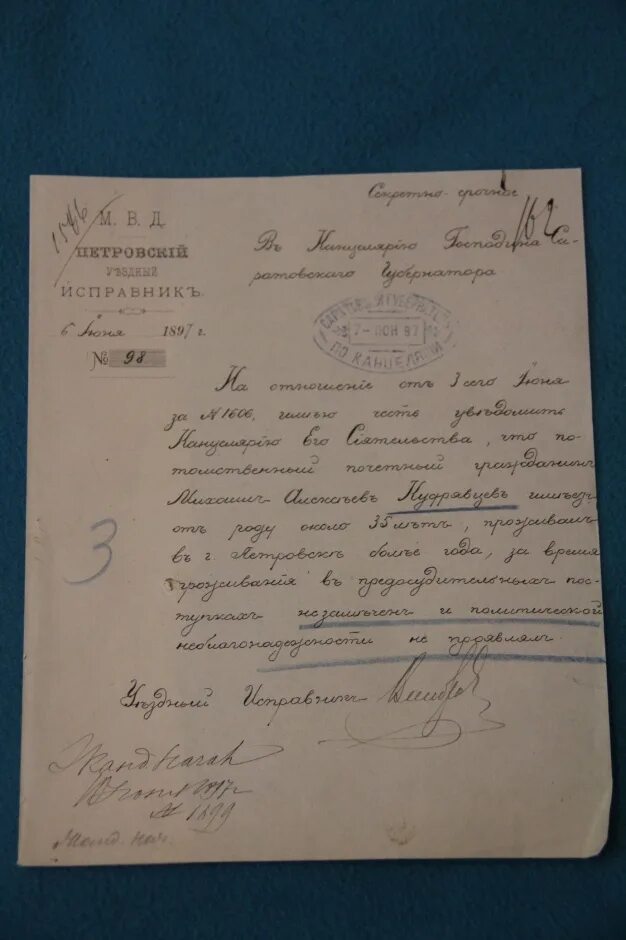 Секретно-срочное
162
1586
М. В. Д.
ПЕТРОВСКІЙ
УѢЗДНЫЙ
ИСПРАВНИКЪ.
6 Июня 1897 г.
№ 98
Въ Канцелярію Господина Са-
ратовскаго Губернатора
7-ІЮН 97
ПО КАНЦЕЛЯРІИ
На отношеніе отъ 3 сего Июня
за № 1606, имѣю честь увѣдомить
Канцелярію Его Сіятельства, что по-
томственный почетный гражданинъ
Михаилъ Алексѣевъ Кудрявцевъ имѣетъ
отъ роду около 35 лѣтъ, проживалъ
въ г. Петровскѣ болѣе года, за время
проживанія въ предосудительныхъ по-
ступкахъ незамѣченъ и политической
неблагонадежности не проявлялъ.
3
Уѣздный Исправникъ
№ 1899